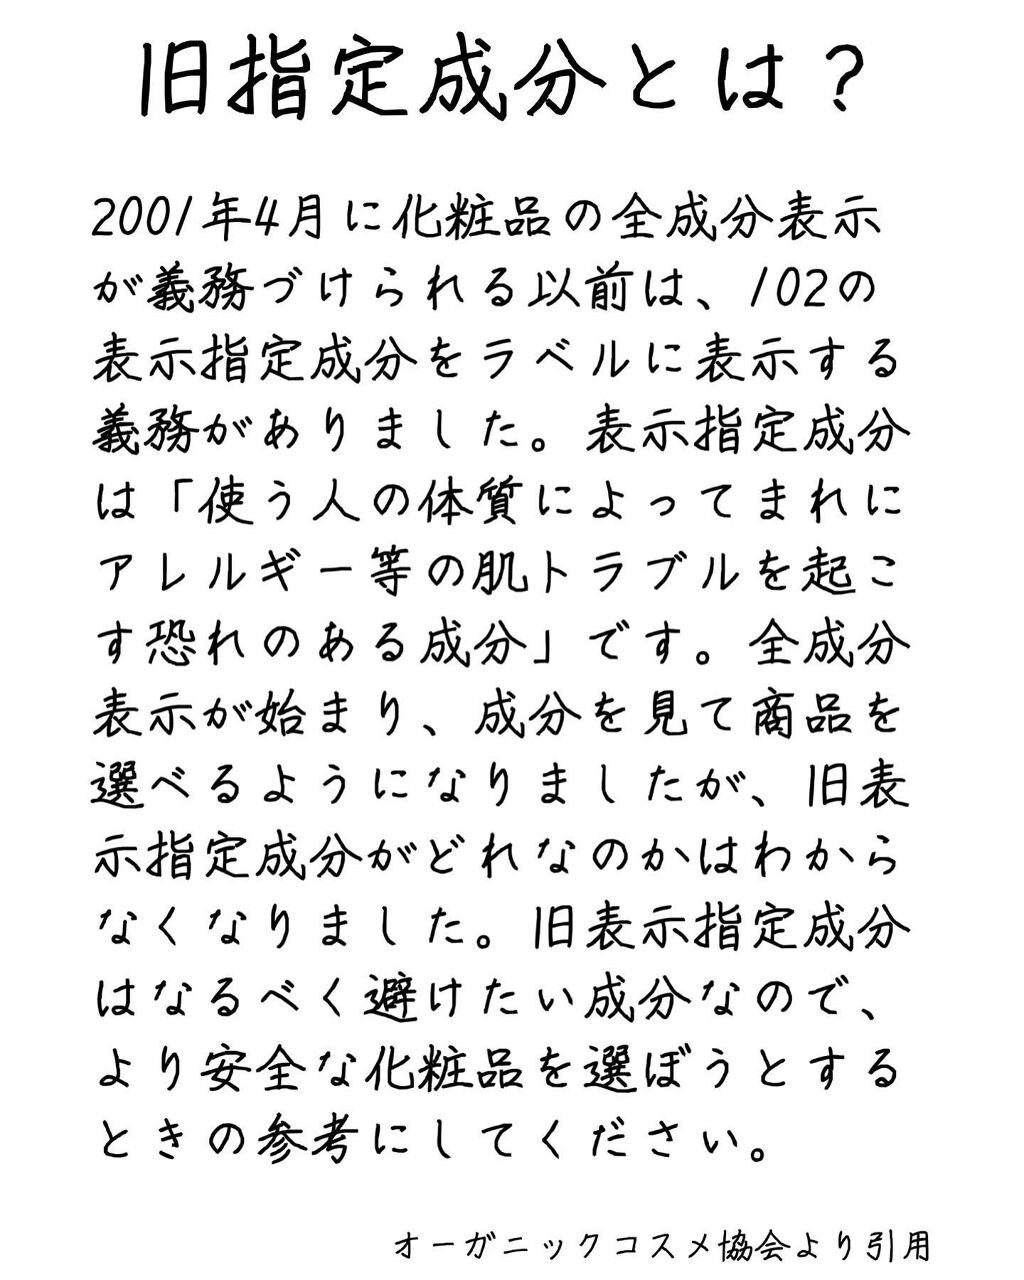 旧指定成分とは？
2001年4月に化粧品の全成分表示
が義務づけられる以前は、102の
表示指定成分をラベルに表示する
義務がありました。表示指定成分
は「使う人の体質によってまれに
アレルギー等の肌トラブルを起こ
す恐れのある成分」です。全成分
表示が始まり、成分を見て商品を
選べるようになりましたが、旧表
示指定成分がどれなのかはわから
なくなりました。旧表示指定成分
はなるべく避けたい成分なので、
より安全な化粧品を選ぼうとする
ときの参考にしてください。
オーガニックコスメ協会より引用